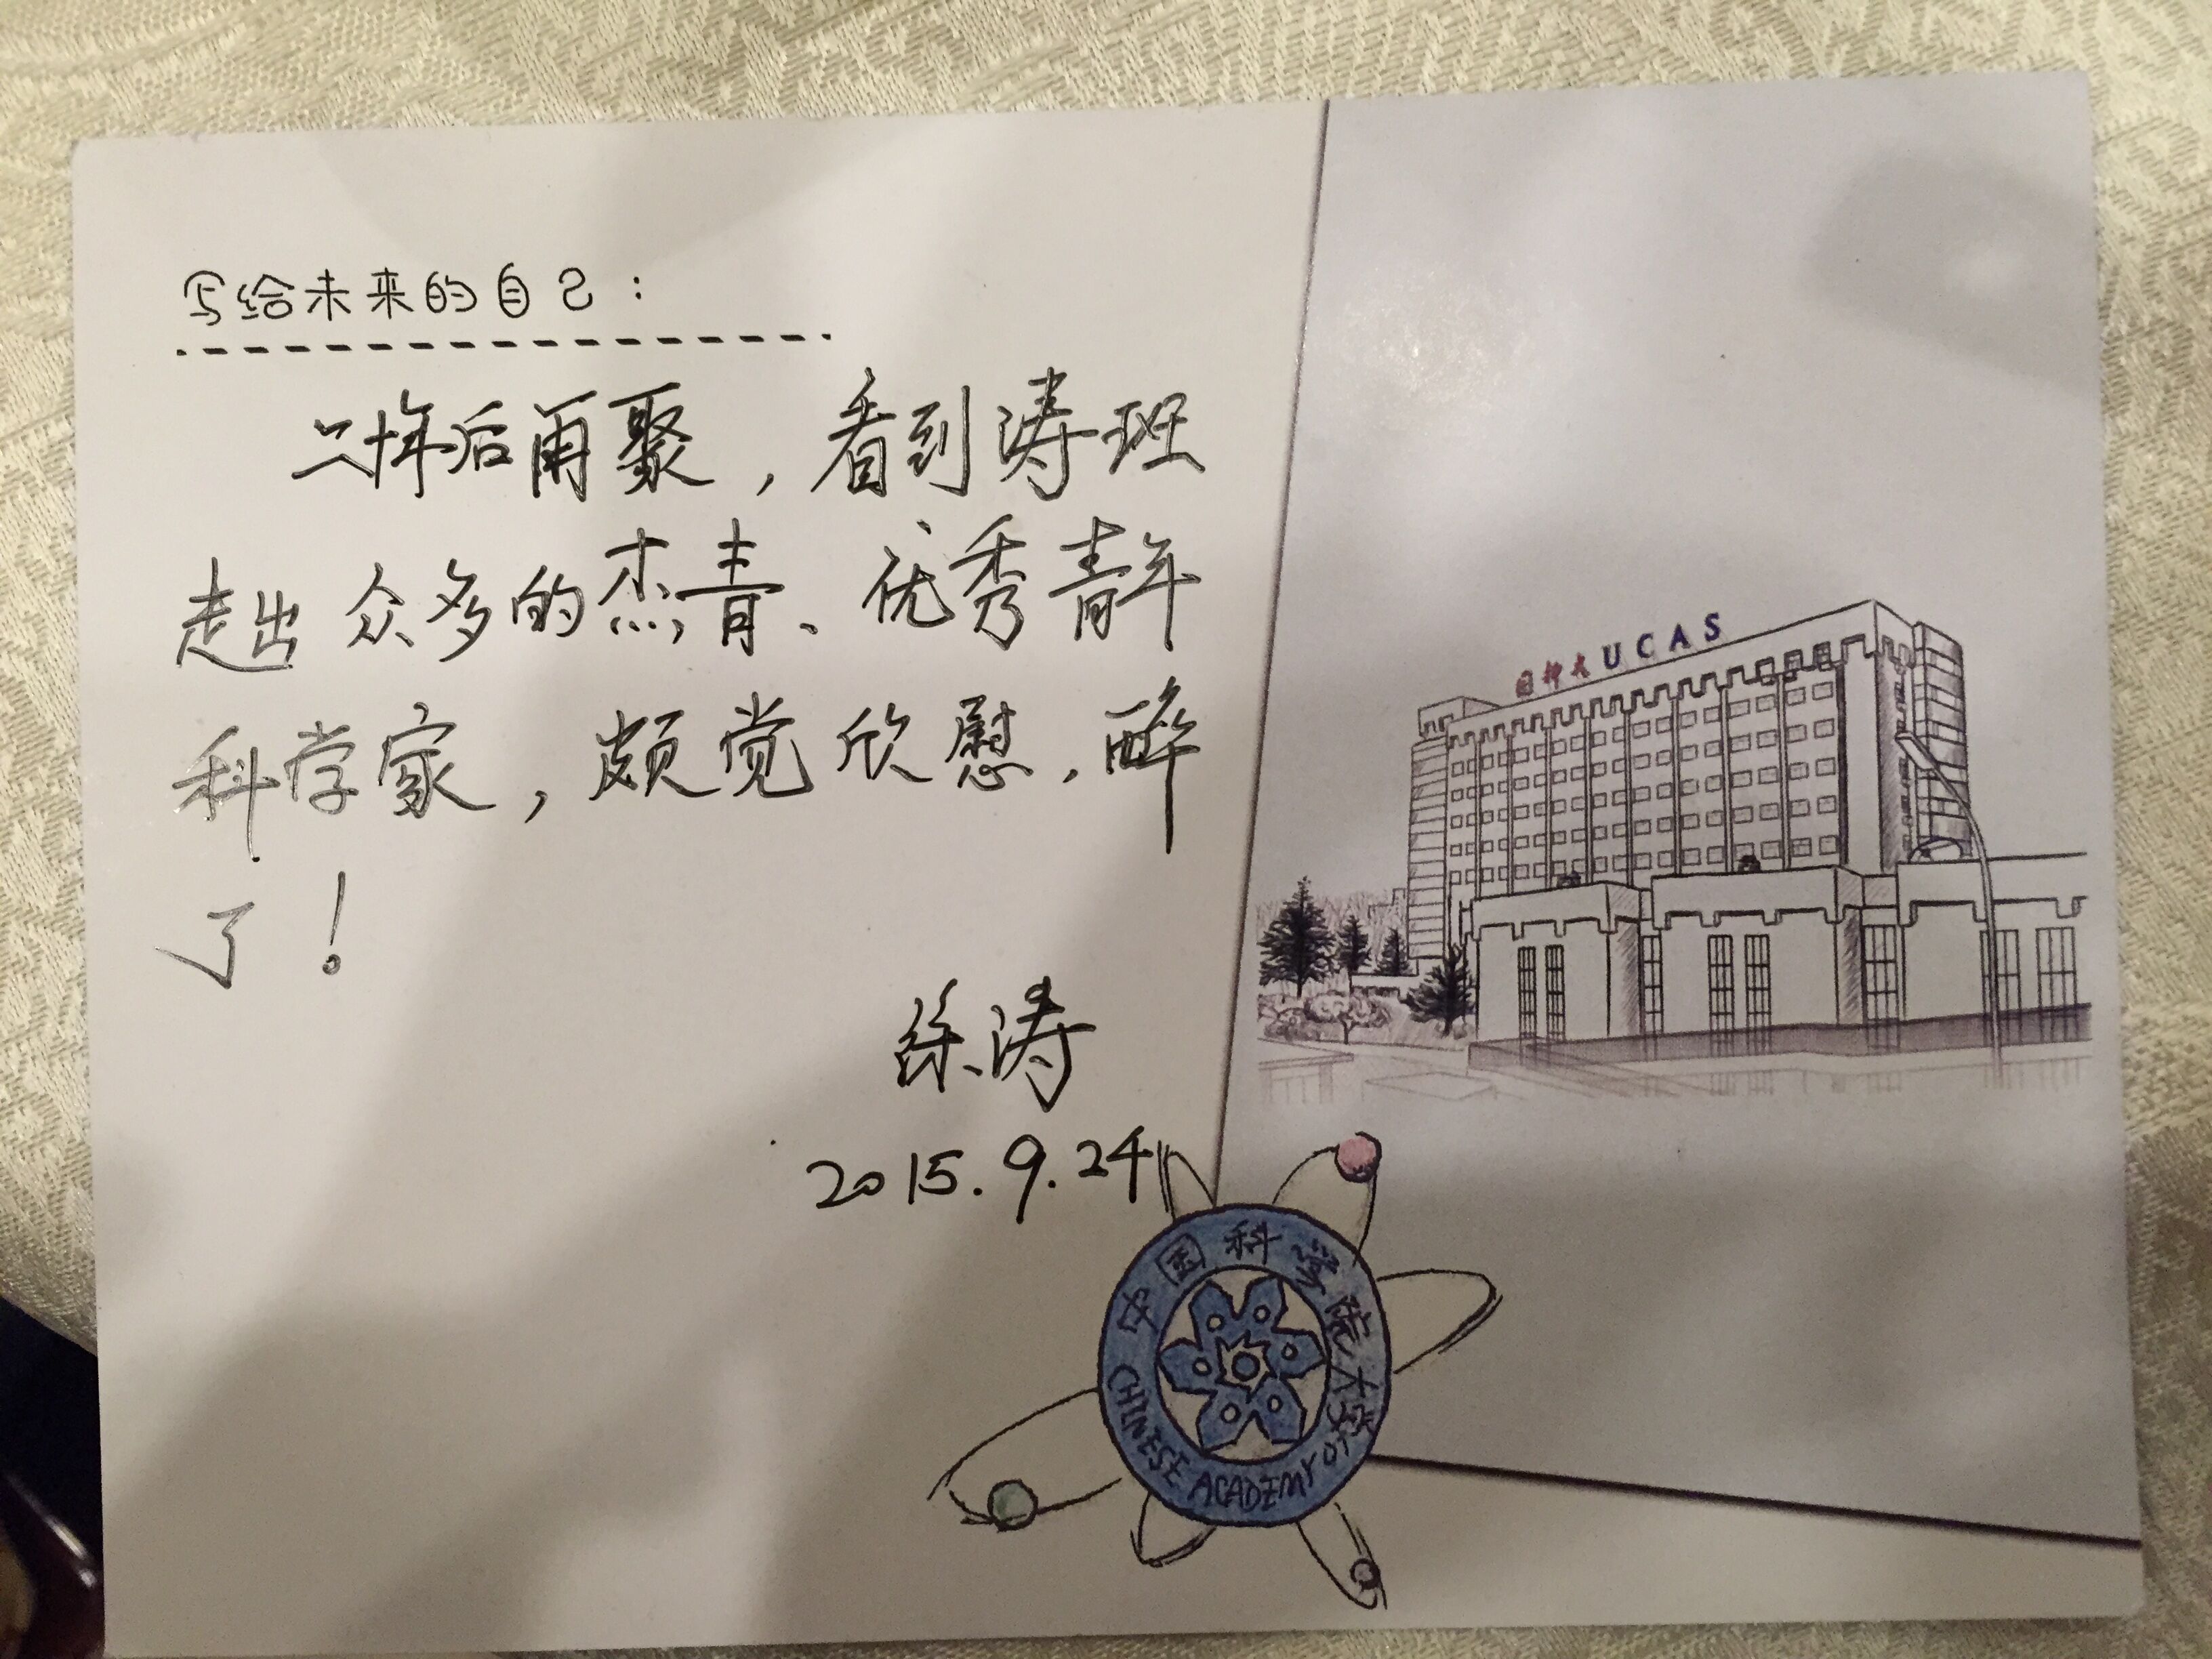 写给未来的自己：
二十年后再聚，看到涛班
走出众多的杰青、优秀青年
科学家，颇觉欣慰，醉
了！
徐涛
2015.9.24
国科大UCAS
中国科学院大学
CHINESE ACADEMY OF